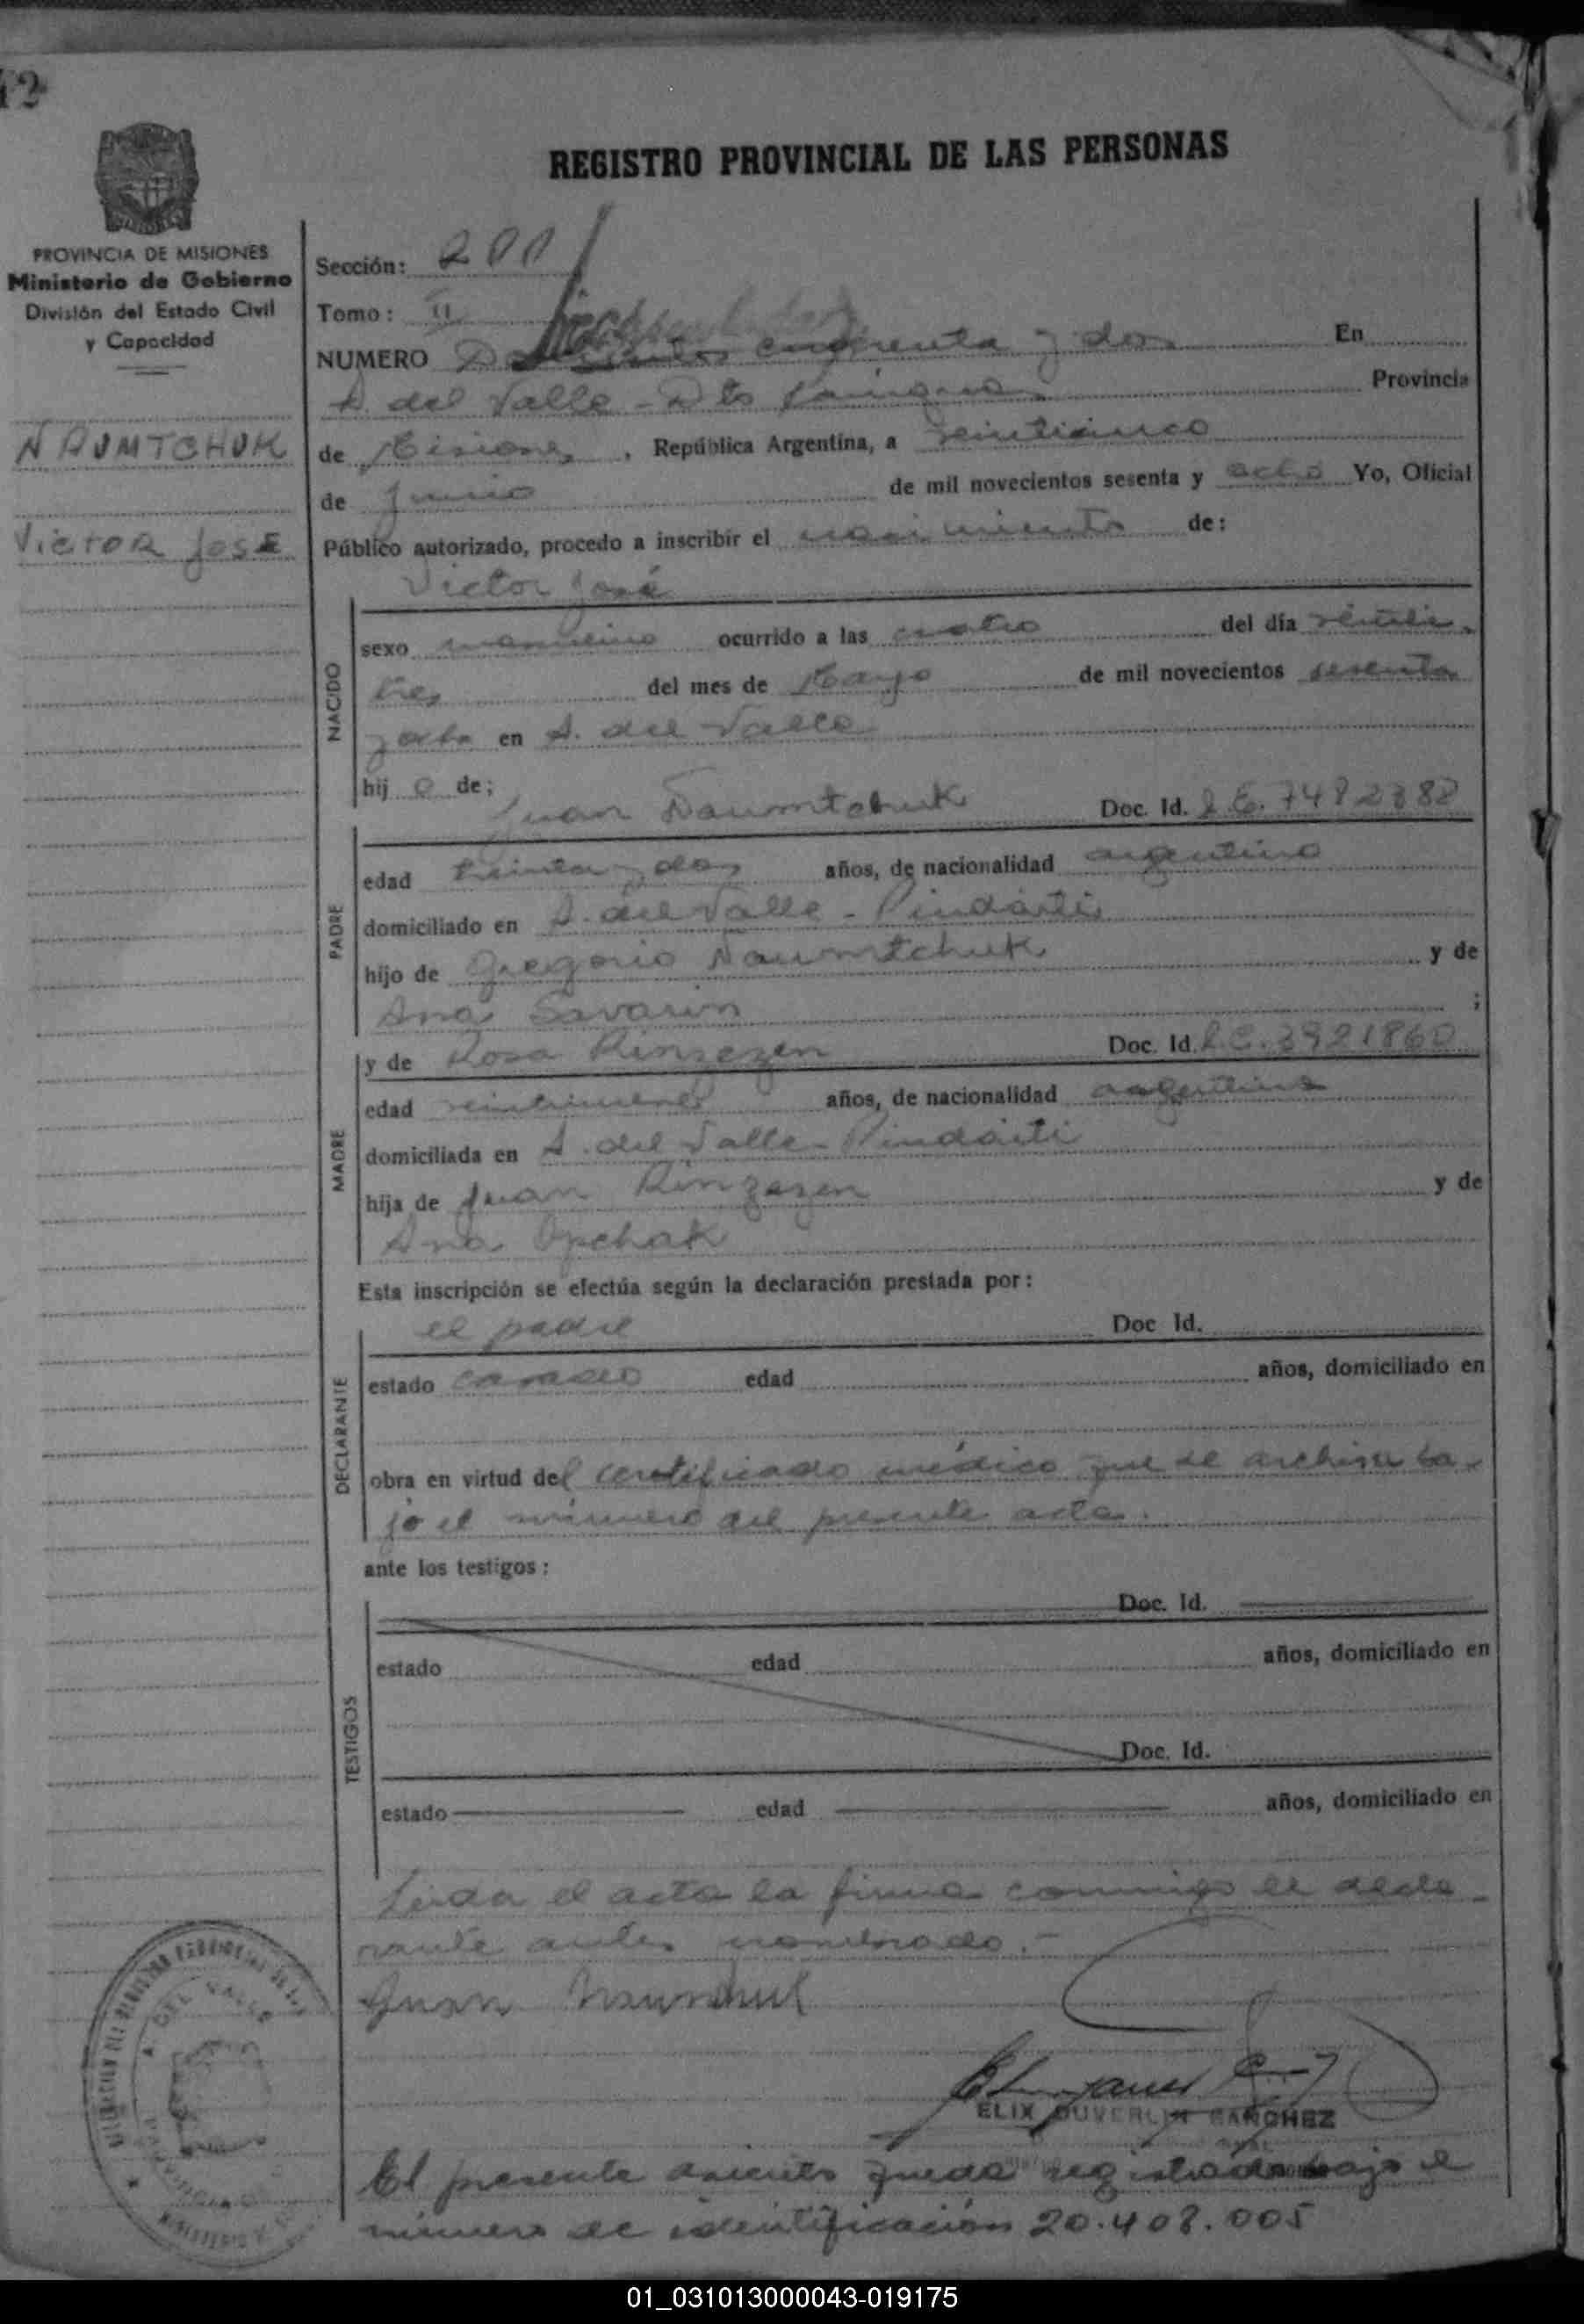 42
REGISTRO PROVINCIAL DE LAS PERSONAS
PROVINCIA DE MISIONES
Ministerio de Gobierno
División del Estado Civil
y Capacidad
NAUMTCHUK
Victor José
Sección:
Tomo: II
NUMERO cuarenta y dos En
A. del Valle - Dto Cainguas Provincia
de Misiones, República Argentina, a veinticinco
de Junio de mil novecientos sesenta y ocho Yo, Oficial
Público autorizado, procedo a inscribir el nacimiento de:
Victor José
NACIDO
sexo masculino ocurrido a las cuatro del día veinti-
tres del mes de Mayo de mil novecientos sesenta
y ocho en A. del Valle
hij o de; Juan Naumtchuk Doc. Id. L.E. 7482382
PADRE
edad treinta y dos años, de nacionalidad argentino
domiciliado en A. del Valle - Pindaiti
hijo de Gregorio Naumtchuk y de
Ana Savarin ;
MADRE
y de Rosa Rinzezen Doc. Id. L.C. 3921860
edad veintinueve años, de nacionalidad argentina
domiciliada en A. del Valle - Pindaiti
hija de Juan Rinzezen y de
Ana Opchak
Esta inscripción se efectúa según la declaración prestada por:
DECLARANTE
el padre Doc Id.
estado casado edad años, domiciliado en
obra en virtud del certificado médico que se archiva ba-
jo el número del presente acta.
ante los testigos:
TESTIGOS
Doc. Id.
estado edad años, domiciliado en
Doc. Id.
estado edad años, domiciliado en
Leida el acta la firma conmigo el decla-
rante antes nombrado.-
Juan Naumchuk
ELIX DUVERLIN SANCHEZ
A. DEL VALLE
El presente asiento queda registrado bajo el
número de identificación 20.408.005
01_031013000043-019175